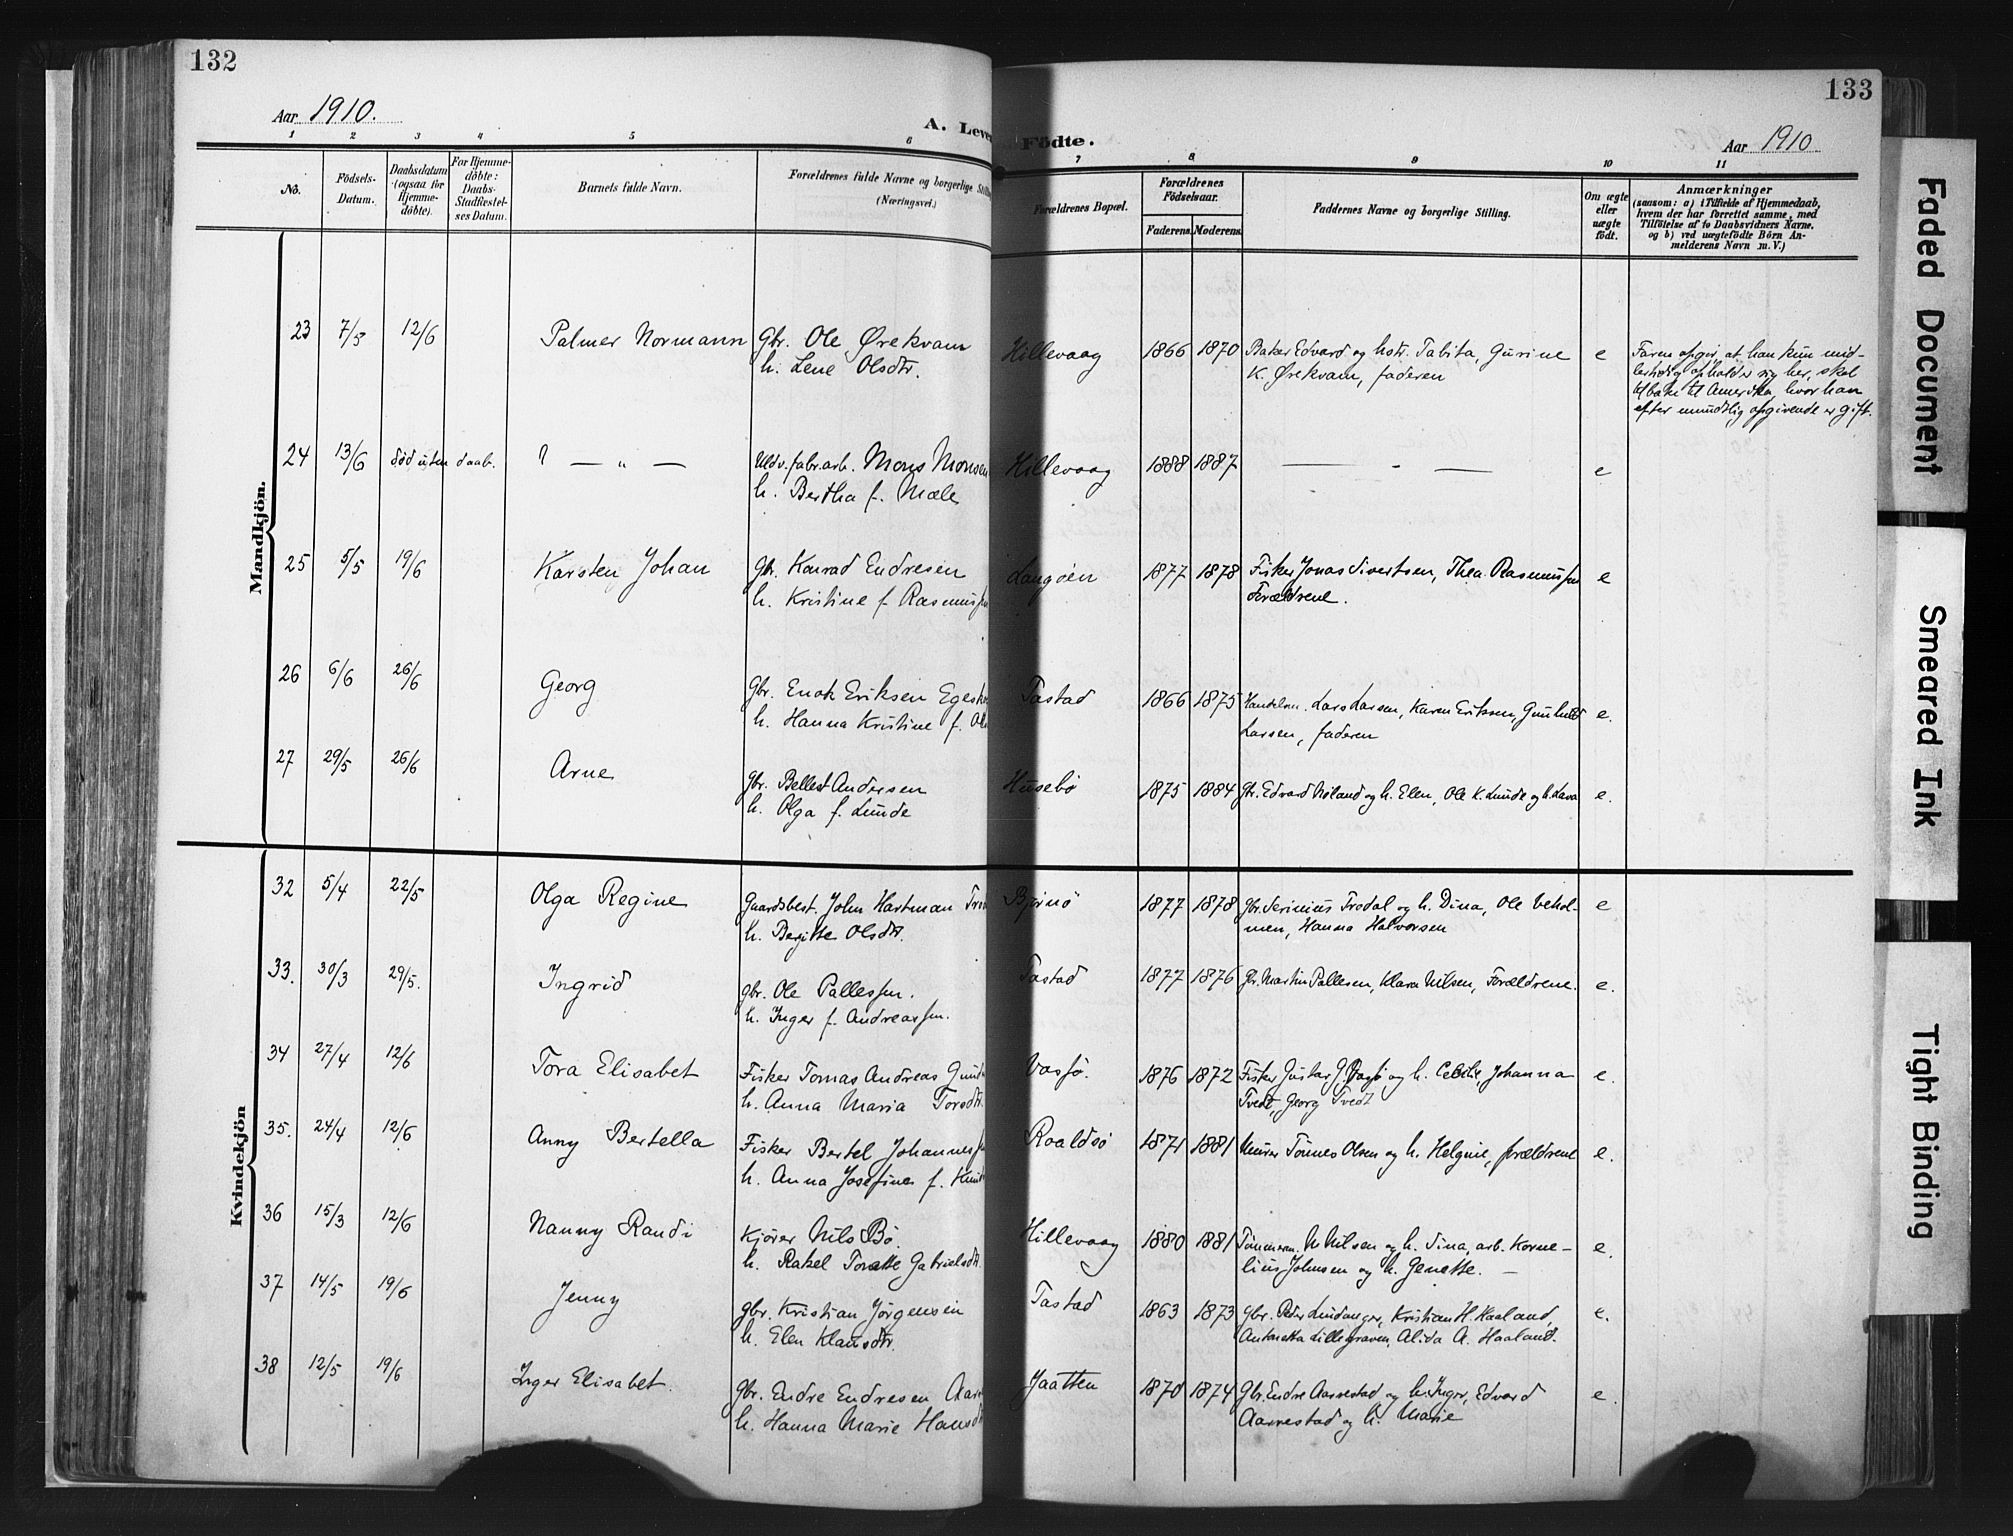 132
133
Aar 1910.
A. Leve
Födte.
Aar 1910
1 2 3 4 5 6 7 8 9 10 11
No.
Födsels-Datum.
Daabsdatum (ogsaa for Hjemme-döbte).
For Hjemme-döbte: Daabs-Stadfæstel-ses Datum.
Barnets fulde Navn.
Forældrenes fulde Navne og borgerlige Still
(Næringsvei.)
Forældrenes Bopæl.
Forældrenes Födselsaar.
Faderens. Moderens.
Faddernes Navne og borgerlige Stilling.
Om ægte eller uægte födt.
Anmærkninger
(saasom: a) i Tilfælde af Hjemmedaab,
hvem der har forrettet samme, med
Tilföielse af to Daabsvidners Navne,
og b) ved uægtefödte Börn An-
melderens Navn m. V.)
Mandkjön.
23 7/5 12/6 Palmer Normann Gbr. Ole Ørekvam Hillevaag 1866 1870 Baker Edvard og hstr. Tabita, Gurine e Faren opgir, at han kun mid-
h. Lene Olsdtr. K. Ørekvam, faderen lertidig opholder sig her, skal
tilbake til Amerika, hvor han
efter mundtlig opgivende er gift.
24 13/6 död uten daab. ? — „ — Uldv.fabr.arb. Mons Monsen Hillevaag 1888 1887 — - — e
h. Bertha f. Mæle
25 5/5 19/6 Karsten Johan Gbr. Konrad Endresen Langöen 1877 1878 Fisker Jonas Sivertsen, Thea Rasmussen e
h. Kristine f. Rasmussen Forældrene.
26 6/6 26/6 Georg Gbr. Enok Eriksen Egesk Tastad 1866 1875 Handelsm. Lars Larsen, Karen Eriksen, Gunhild e.
h. Hanna Kristine f. Ol Larsen, faderen
27 29/5 26/6 Arne gbr. Bellest Andersen Husebö 1875 1884 Gbr. Edvard Nøland og h. Elen, Ole K. Lunde og h. Lava e.
h. Olga f. Lunde
Kvindekjön
32 5/4 22/5 Olga Regine Gaardsbest. John Hartman Fro Bjørnö 1877 1878 gbr. Serinius Frodal og h. Dina, Ole Vehol- e
h. Beritte Olsdtr. men, Hanna Halvorsen
33. 30/3 29/5. Ingrid gbr. Ole Pallessen. Tastad 1877 1876 Gbr. Martin Pallesen, Klara Nilsen, Forældrene. e.
h. Inger f. Andreassen.
34 27/4 12/6 Tora Elisabet Fisker Tomas Andreas Gund Vasjö. 1876 1872 Fisker Gustav G. Vasjö og h. Cecilie, Johanna e.
h. Anna Maria Torsdtr. Tvedt, Georg Tvedt
35. 24/4 12/6 Anny Bertella Fisker Bertel Johannes Roaldsö 1871 1881 Murer Tönnes Olsen og h. Helgine, forældrene e.
h. Anna Josefine f. Knud
36 15/3 12/6 Nanny Randi Kjörer Nils Bö. Hillevaag 1880 1881 Tömmerm. N Nilsen og h. Sina, arb. Korne- e.
h. Rakel Tonette Gabrielsdtr. lius Johnsen og h. Genette. —
37 14/5 19/6 Jenny gbr. Kristian Jörgensen Tastad 1863 1873 gbr. Peder Lindanger, Kristian H. Haaland, e.
h. Elen Klausdtr. Antonetta Lillegraven, Alida A. Haaland.
38 12/5 19/6 Inger Elisabet. gbr. Endre Endresen Aar Jaatten 1870 1874 Gbr. Endre Aarrestad og h. Inger, Edvard e.
h. Hanna Marie Hansdt Aarrestad og h. Marie
Faded Document
Smeared Ink
Tight Binding